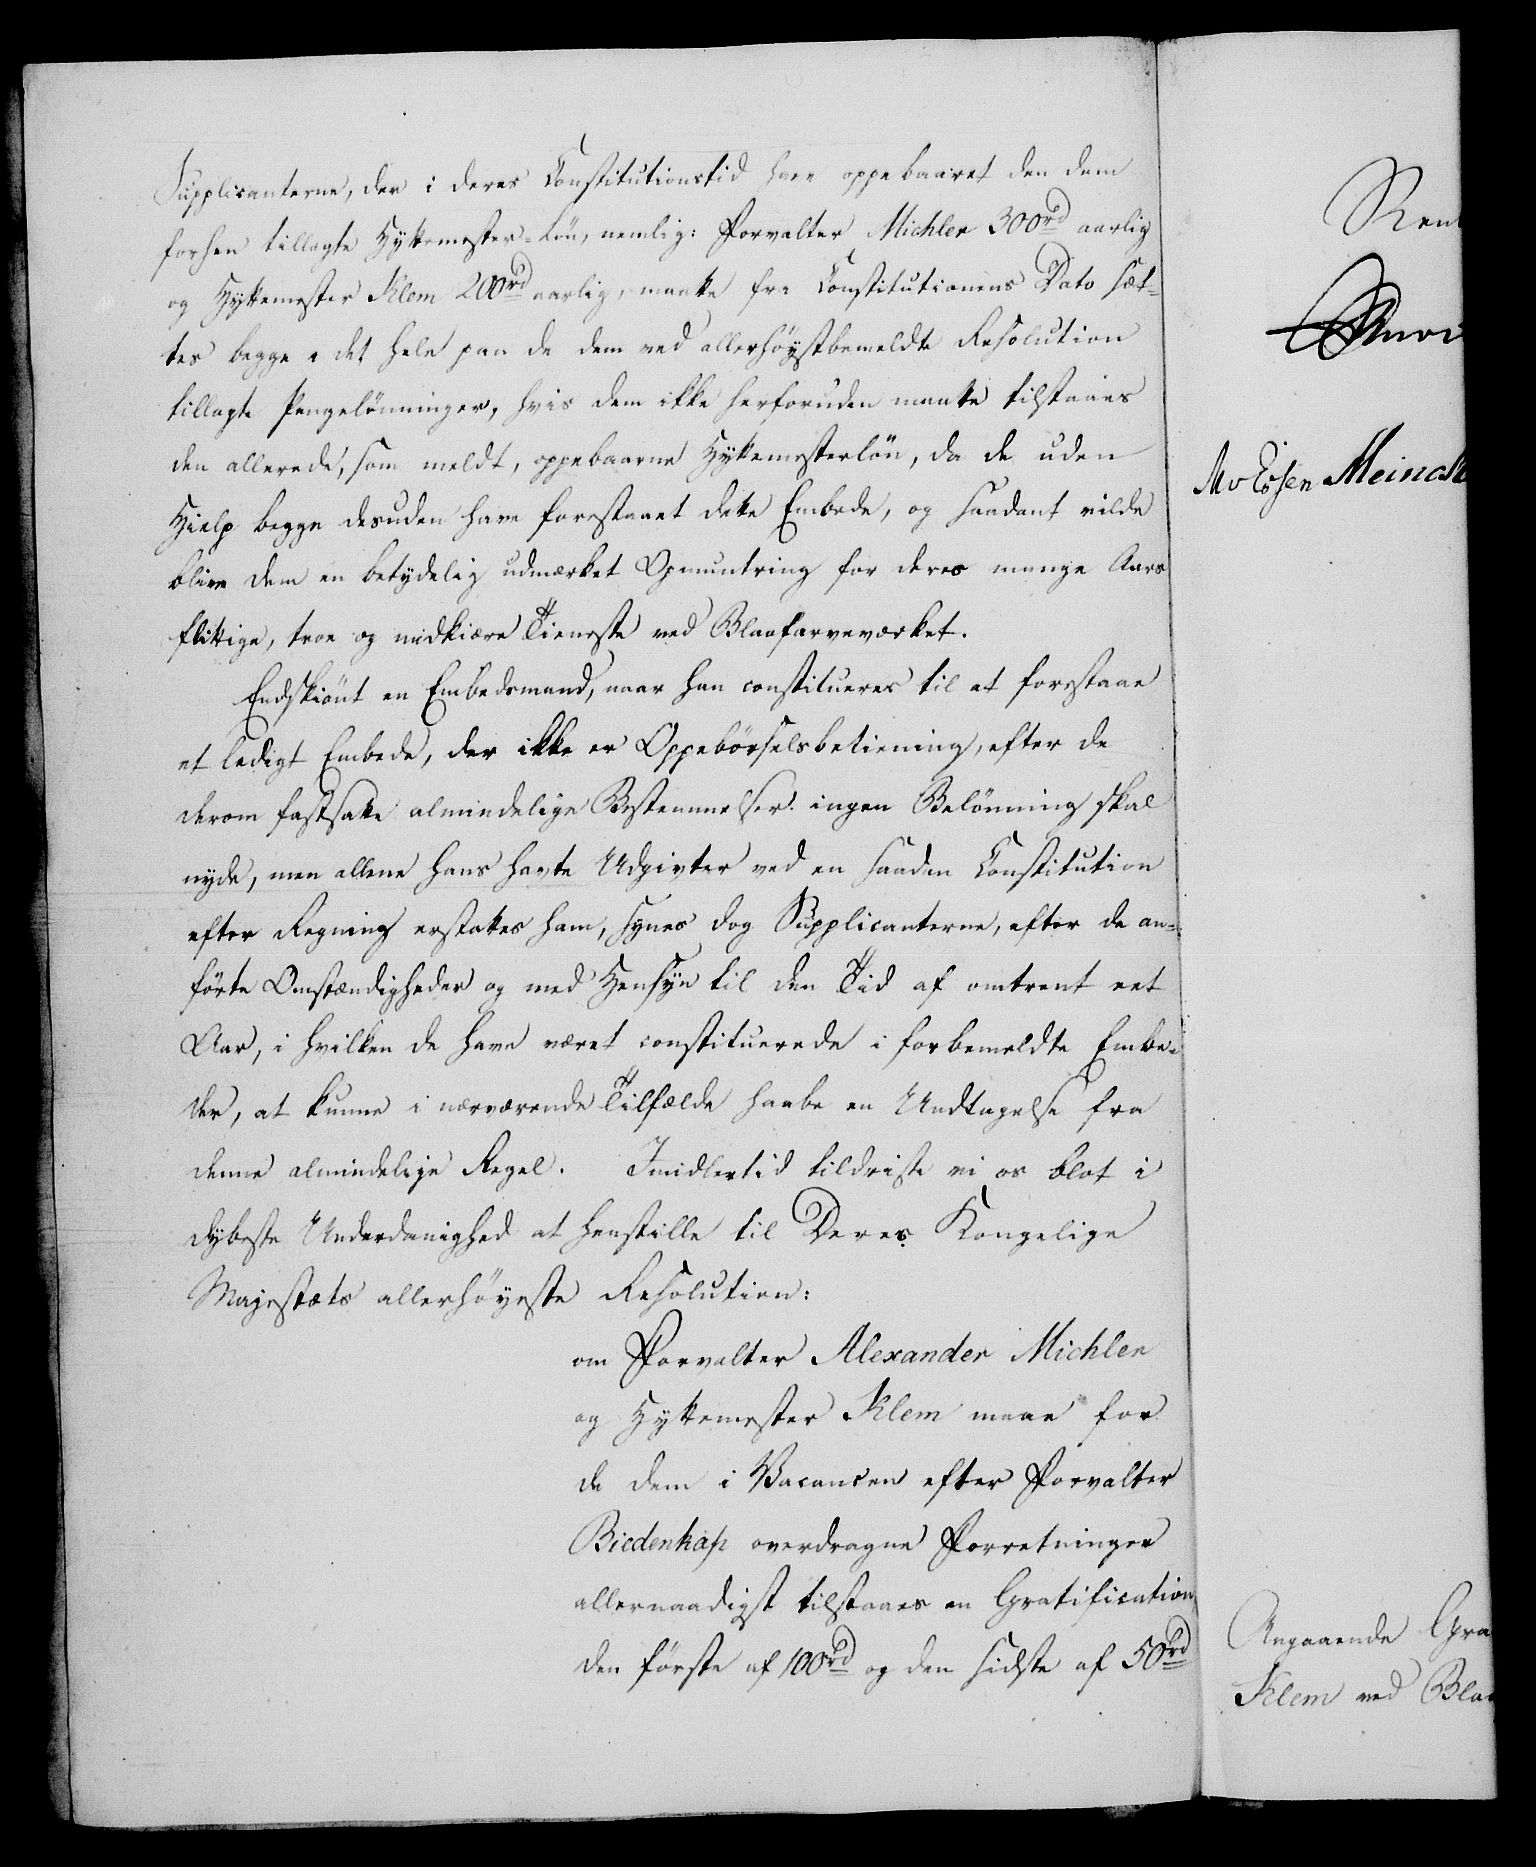 Supplicanterne, der i deres Constitutionstid have oppebaaret den dem
forhen tillagte Hyttemester-Løn, nemlig: Forvalter Michler 300rd aarlig
og Hyttemester Klem 200rd aarlig, maatte fra Constitutionens Dato sæt-
tes begge i det hele paa de dem ved allerhøystbemeldte Resolution
tillagte Pengelønninger, hvis dem ikke herforuden maatte tilstaaes
den allerede, som meldt, oppebaarne Hyttemesterløn, da de uden
Hielp begge desuden have forestaaet dette Embede, og saadant vilde
blive dem en betydelig udmærket Opmuntring for deres mange Aars
flittige, troe og nidkiære Tieneste ved Blaafarveværket.
Endskiønt en Embedsmand, naar han constitueres til at forestaae
et ledigt Embede, der ikke er Oppebørselsbetiening, efter de
derom fastsatte almindelige Bestemmelser ingen Belønning skal
nyde, men allene hans havte Udgivter ved en saadan Constitution
efter Regning erstattes ham, synes dog Supplicanterne, efter de an-
førte Omstændigheder og med Hensyn til den Tid af omtrent eet
Aar, i hvilken de have været constituerede i forbemeldte Embe-
der, at kunne i nærværende Tilfælde haabe en Undtagelse fra
denne almindelige Regel. Imidlertid tildriste vi os blot i
dybeste Underdanighed at henstille til Deres Kongelige
Majestæts allerhøyeste Resolution:
om Forvalter Alexander Michler
og Hyttemester Klem maae for
de dem i Vacancen efter Forvalter
Biedenkap overdragne Forretninger
allernaadigst tilstaaes en Gratification
den første af 100rd og den sidste af 50rd
Ren
MvEssen Meinck
Angaaende Gra
Klem ved Blaa